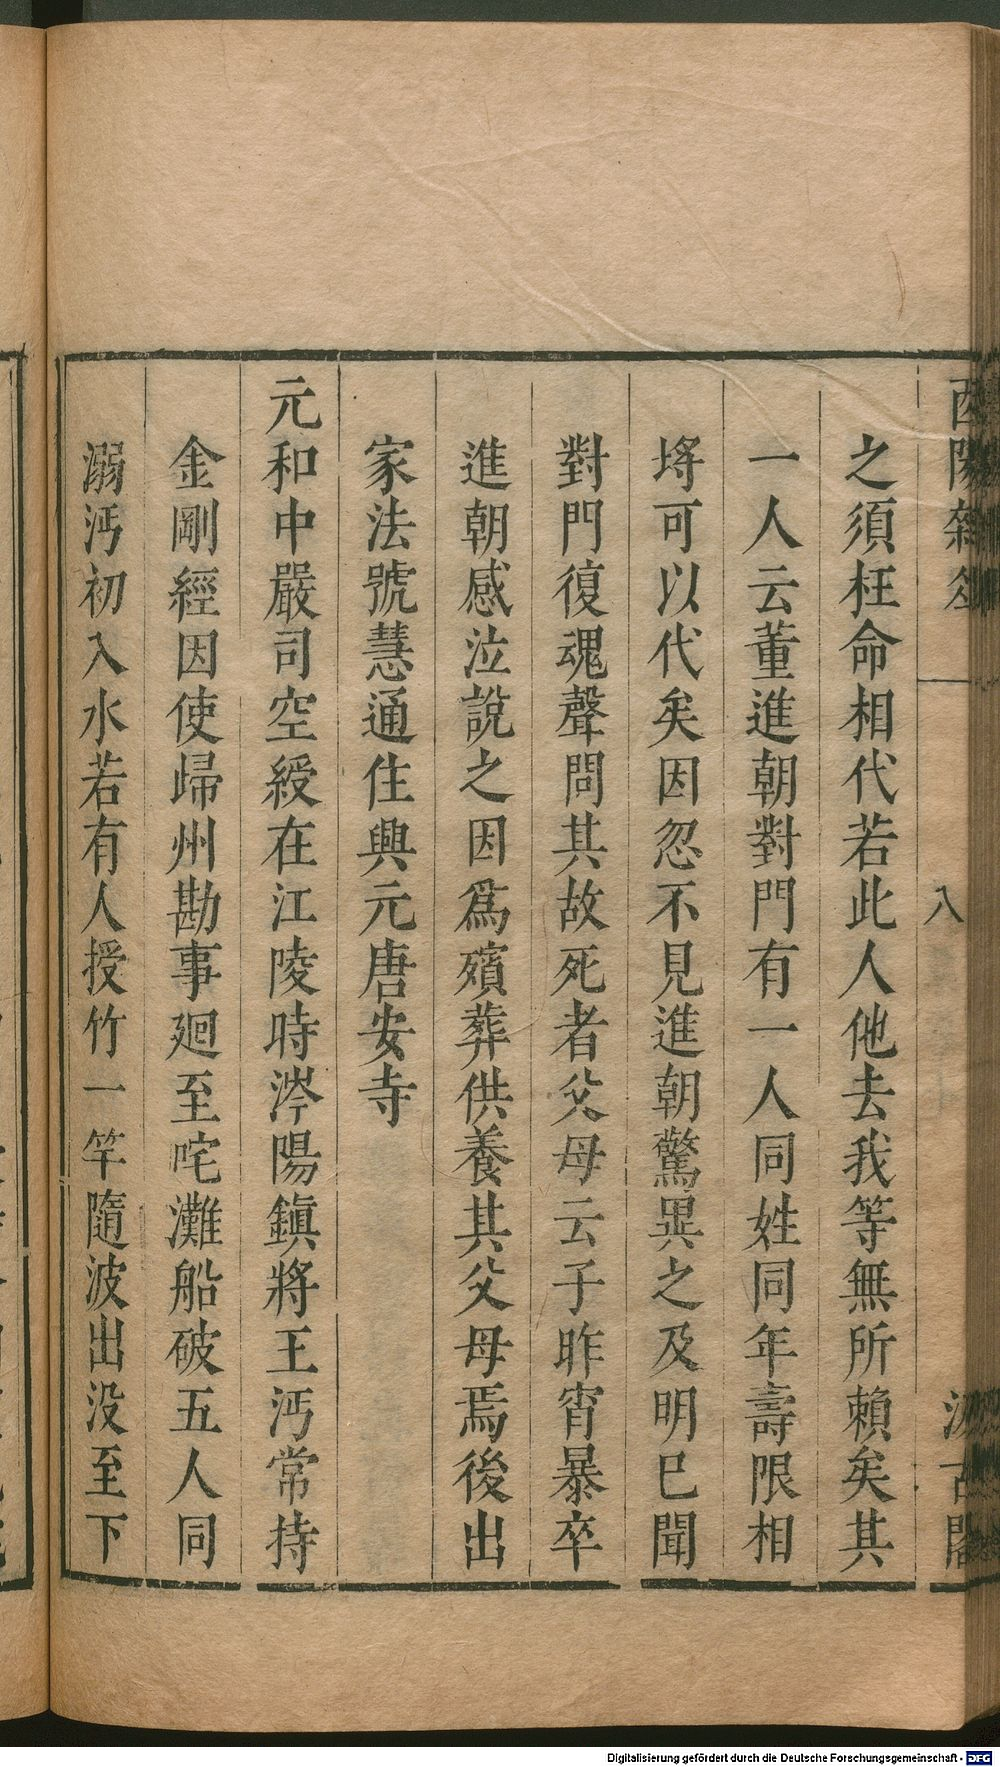 酉陽雜俎
八
汲古閣
之須枉命相代若此人他去我等無所賴矣其
一人云董進朝對門有一人同姓同年壽限相
埓可以代矣因忽不見進朝驚異之及明已聞
對門復魂聲問其故死者父母云子昨宵暴卒
進朝感泣說之因爲殯葬供養其父母焉後出
家法號慧通住興元唐安寺
元和中嚴司空綬在江陵時涔陽鎮將王沔常持
金剛經因使歸州勘事廻至咤灘船破五人同
溺沔初入水若有人授竹一竿隨波出没至下
Digitalisierung gefördert durch die Deutsche Forschungsgemeinschaft - DFG